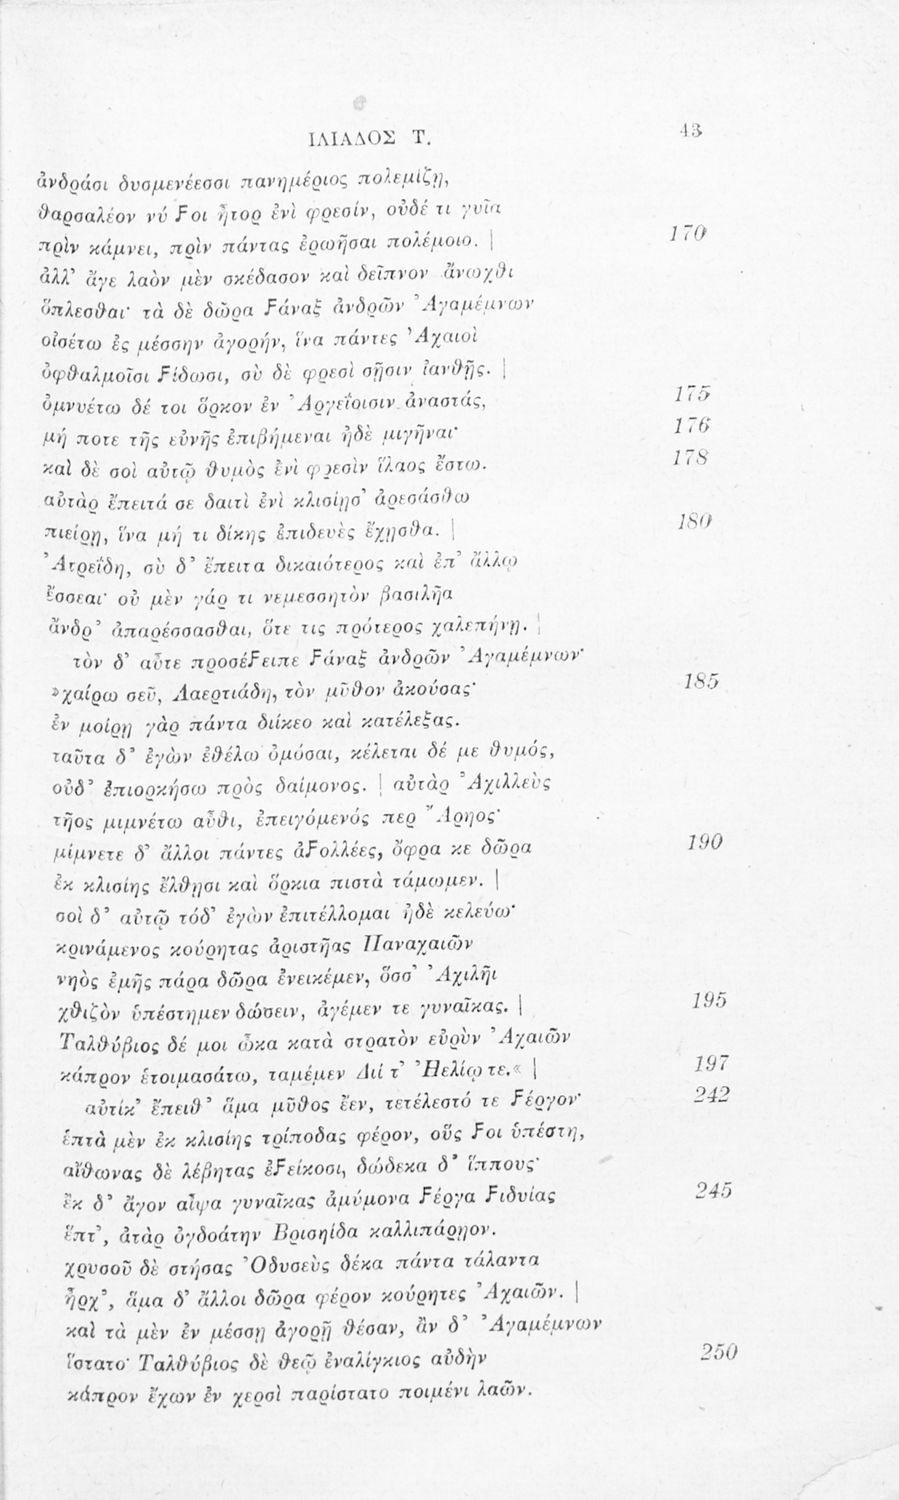 ΙΛΙΑΔΟΣ Τ. 43
ἀνδράσι δυσμενέεσσι πανημέριος πολεμίζῃ,
θαρσαλέον νύ ϝοι ἦτορ ἐνὶ φρεσίν, οὐδέ τι γυῖα
πρὶν κάμνει, πρὶν πάντας ἐρωῆσαι πολέμοιο. | 170
ἀλλ' ἄγε λαὸν μὲν σκέδασον καὶ δεῖπνον ἄνωχθι
ὅπλεσθαι· τὰ δὲ δῶρα ϝάναξ ἀνδρῶν Ἀγαμέμνων
οἰσέτω ἐς μέσσην ἀγορήν, ἵνα πάντες Ἀχαιοὶ
ὀφθαλμοῖσι ϝίδωσι, σὺ δὲ φρεσὶ σῇσιν ἰανθῇς. |
ὀμνυέτω δέ τοι ὅρκον ἐν Ἀργεΐοισιν ἀναστάς, 175
μή ποτε τῆς εὐνῆς ἐπιβήμεναι ἠδὲ μιγῆναι· 176
καὶ δὲ σοὶ αὐτῷ θυμὸς ἐνὶ φρεσὶν ἵλαος ἔστω. 178
αὐτὰρ ἔπειτά σε δαιτὶ ἐνὶ κλισίῃσ' ἀρεσάσθω
πιείρῃ, ἵνα μή τι δίκης ἐπιδευὲς ἔχῃσθα. | 180
Ἀτρεΐδη, σὺ δ' ἔπειτα δικαιότερος καὶ ἐπ' ἄλλῳ
ἔσσεαι· οὐ μὲν γάρ τι νεμεσσητὸν βασιλῆα
ἄνδρ' ἀπαρέσσασθαι, ὅτε τις πρότερος χαλεπήνῃ. |
τὸν δ' αὖτε προσέϝειπε ϝάναξ ἀνδρῶν Ἀγαμέμνων·
»χαίρω σεῦ, Λαερτιάδη, τὸν μῦθον ἀκούσας· 185
ἐν μοίρῃ γὰρ πάντα διίκεο καὶ κατέλεξας.
ταῦτα δ' ἐγὼν ἐθέλω ὀμόσαι, κέλεται δέ με θυμός,
οὐδ' ἐπιορκήσω πρὸς δαίμονος. | αὐτὰρ Ἀχιλλεὺς
τῆος μιμνέτω αὖθι, ἐπειγόμενός περ Ἄρηος·
μίμνετε δ' ἄλλοι πάντες ἀϝολλέες, ὄφρα κε δῶρα 190
ἐκ κλισίης ἔλθῃσι καὶ ὅρκια πιστὰ τάμωμεν. |
σοὶ δ' αὐτῷ τόδ' ἐγὼν ἐπιτέλλομαι ἠδὲ κελεύω·
κρινάμενος κούρητας ἀριστῆας Παναχαιῶν
νηὸς ἐμῆς πάρα δῶρα ἐνεικέμεν, ὅσσ' Ἀχιλῆι
χθιζὸν ὑπέστημεν δώσειν, ἀγέμεν τε γυναῖκας. | 195
Ταλθύβιος δέ μοι ὦκα κατὰ στρατὸν εὐρὺν Ἀχαιῶν
κάπρον ἑτοιμασάτω, ταμέμεν Διί τ' Ἠελίῳ τε.« | 197
αὐτίκ' ἔπειθ' ἅμα μῦθος ἔεν, τετέλεστό τε ϝέργον· 242
ἑπτὰ μὲν ἐκ κλισίης τρίποδας φέρον, οὕς ϝοι ὑπέστη,
αἴθωνας δὲ λέβητας ἐϝείκοσι, δώδεκα δ' ἵππους·
ἐκ δ' ἄγον αἶψα γυναῖκας ἀμύμονα ϝέργα ϝιδυίας 245
ἕπτ', ἀτὰρ ὀγδοάτην Βρισηίδα καλλιπάρῃον.
χρυσοῦ δὲ στήσας Ὀδυσεὺς δέκα πάντα τάλαντα
ἦρχ', ἅμα δ' ἄλλοι δῶρα φέρον κούρητες Ἀχαιῶν. |
καὶ τὰ μὲν ἐν μέσσῃ ἀγορῇ θέσαν, ἂν δ' Ἀγαμέμνων
ἵστατο· Ταλθύβιος δὲ θεῷ ἐναλίγκιος αὐδὴν 250
κάπρον ἔχων ἐν χερσὶ παρίστατο ποιμένι λαῶν.